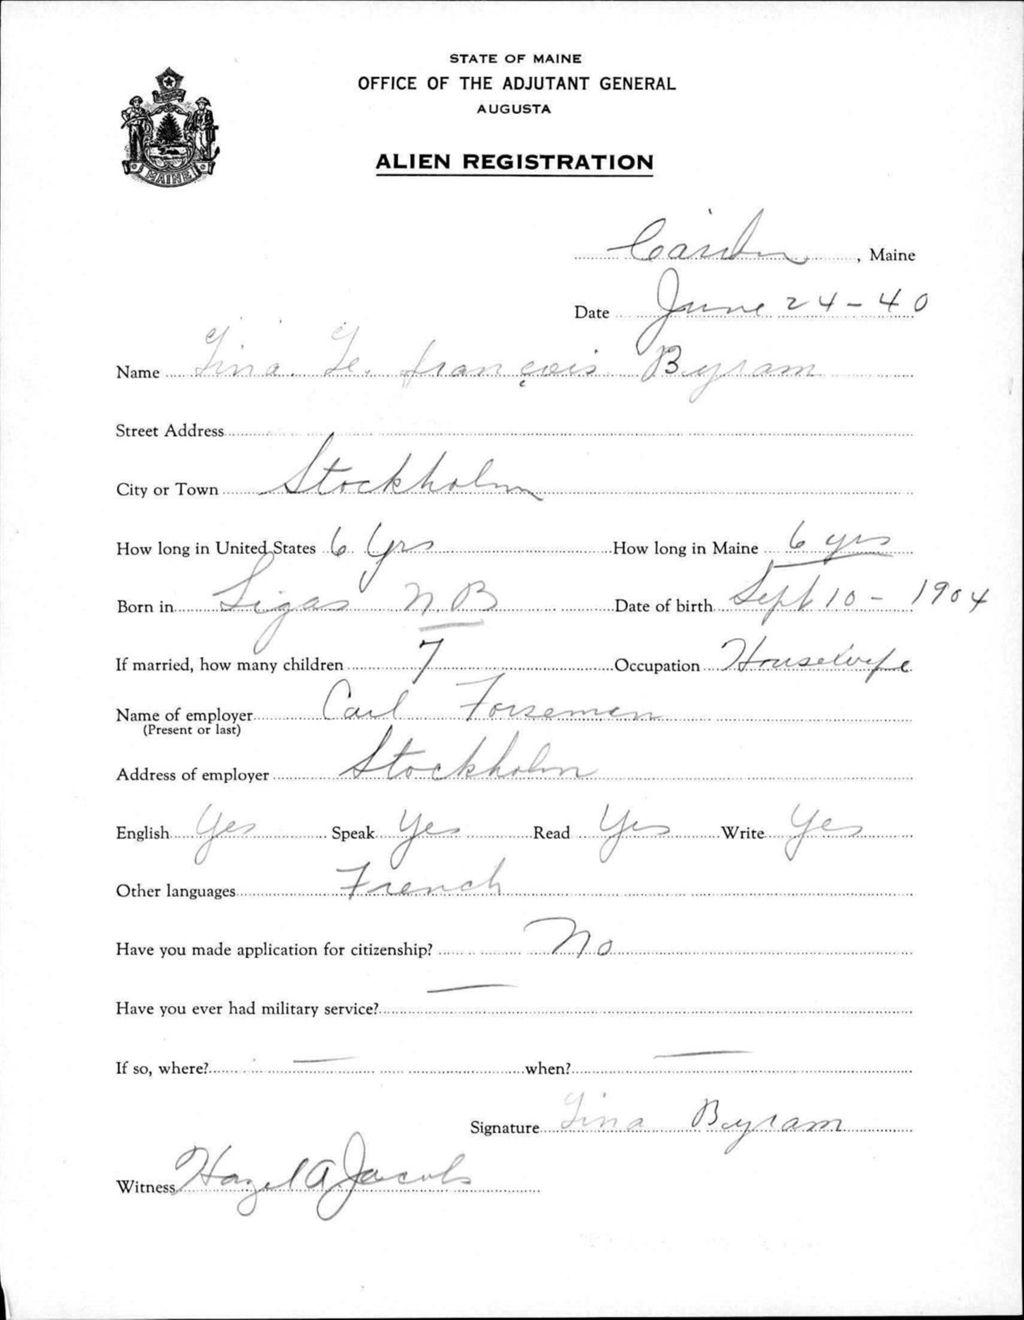 STATE OF MAINE
OFFICE OF THE ADJUTANT GENERAL
AUGUSTA
MAINE
ALIEN REGISTRATION
, Maine
Date June 24-40
Name Lina Le. françois Byram
Street Address
City or Town Stockholm
How long in United States 6 Yrs How long in Maine 6 yrs
Born in Sigas N.B Date of birth Sept 10 - 1904
If married, how many children 7 Occupation Housewife
Name of employer Carl Forsemen
(Present or last)
Address of employer Stockholm
English Yes Speak Yes Read Yes Write Yes
Other languages French
Have you made application for citizenship? No
Have you ever had military service? —
If so, where? — when? —
Signature Lina Byram
Witness Hazel A Jacobs